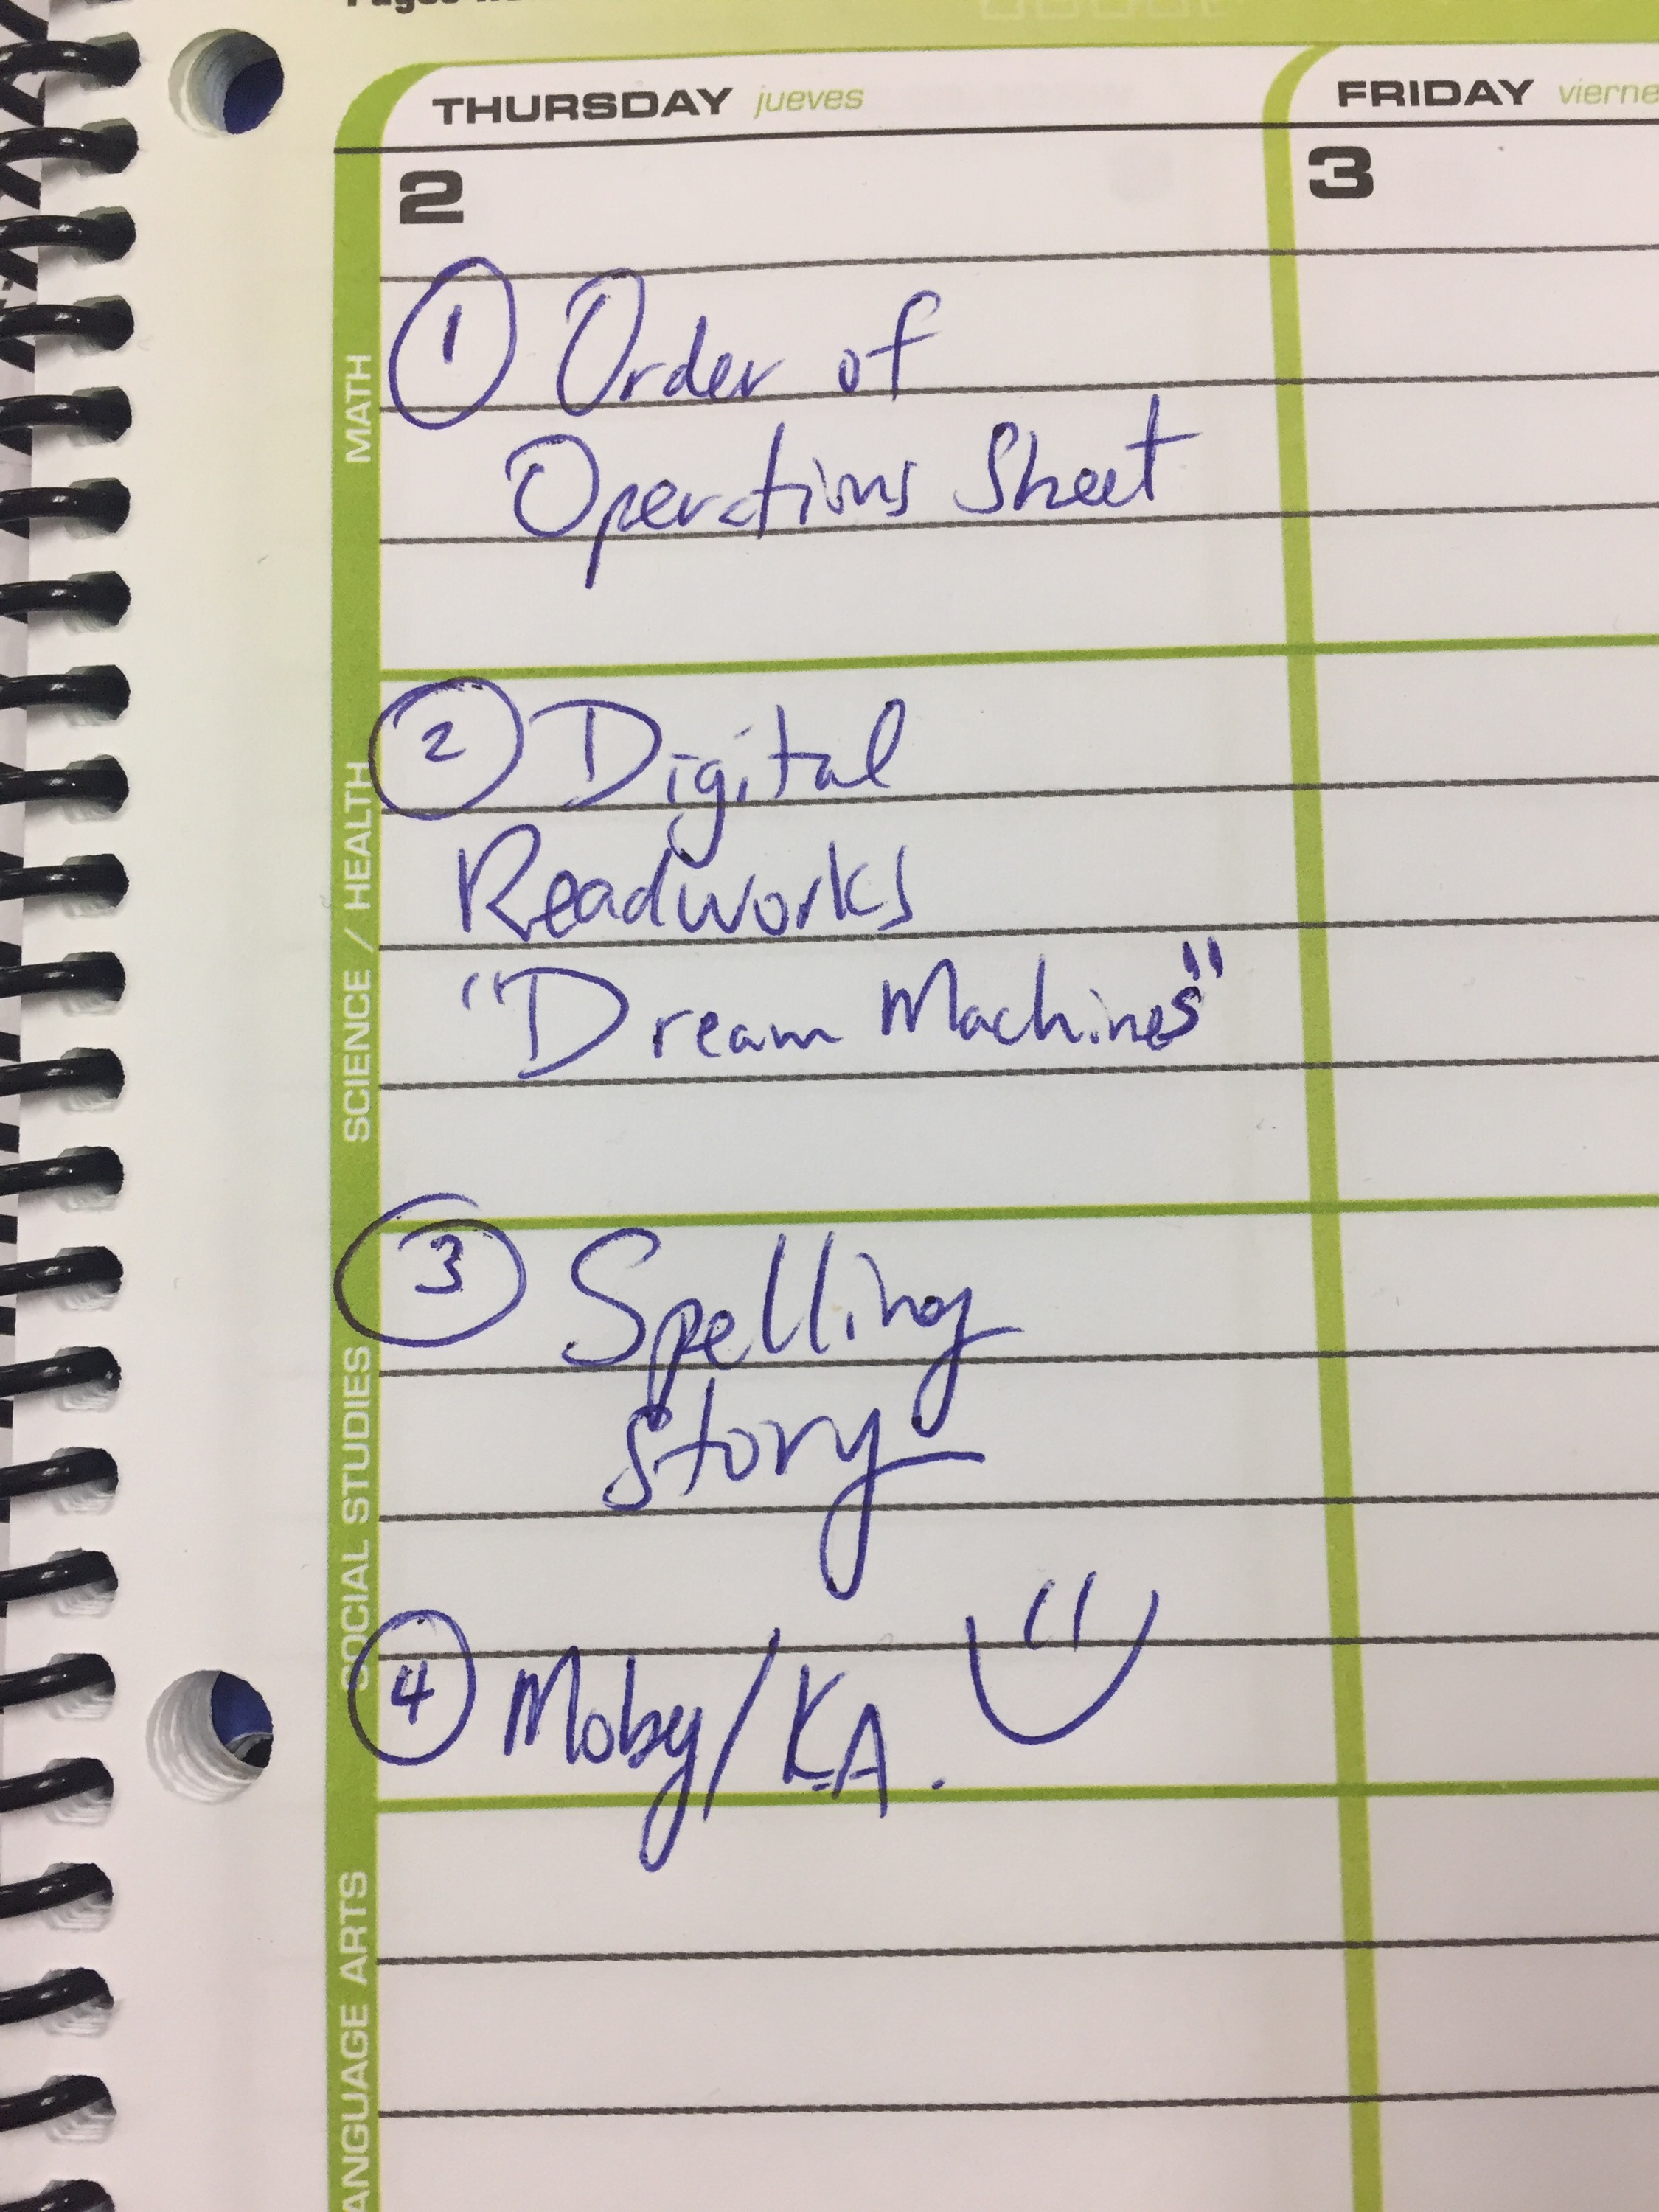 THURSDAY jueves
FRIDAY
2
3
MATH
① Order of
Operations Sheet
SCIENCE / HEALTH
② Digital
Readworks
"Dream Machines"
SOCIAL STUDIES
③ Spelling
Story
④ Moby/KA.
ARTS